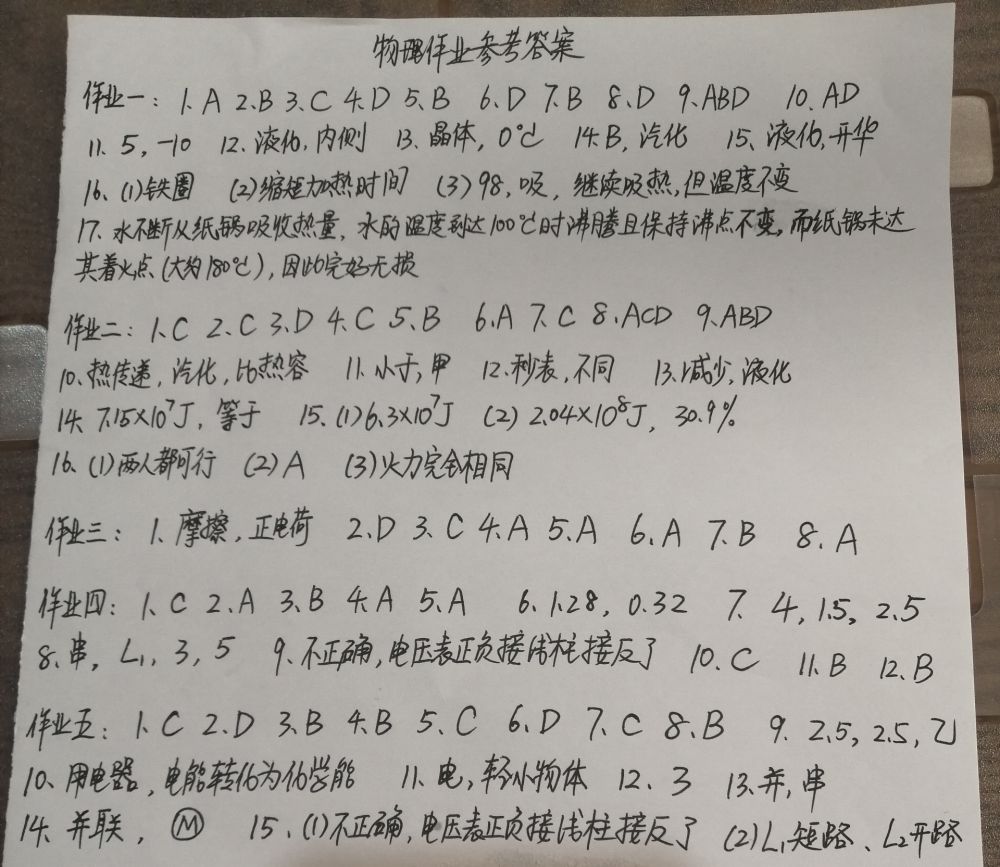 物理作业参考答案
作业一: 1、A 2、B 3、C 4、D 5、B 6、D 7、B 8、D 9、ABD 10、AD
11、5, -10 12、液化, 内侧 13、晶体, 0℃ 14、B, 汽化 15、液化, 升华
16、(1)铁圈 (2)缩短加热时间 (3)98, 吸, 继续吸热, 但温度不变
17、水不断从纸锅吸收热量, 水的温度到达100℃时沸腾且保持沸点不变, 而纸锅未达
其着火点(大约180℃), 因此完好无损
作业二: 1、C 2、C 3、D 4、C 5、B 6、A 7、C 8、ACD 9、ABD
10、热传递, 汽化, 比热容 11、小于, 甲 12、秒表, 不同 13、减少, 液化
14、7.15×10⁷J, 等于 15、(1)6.3×10⁷J (2)2.04×10⁸J, 30.9%
16、(1)两人都可行 (2)A (3)火力完全相同
作业三: 1、摩擦, 正电荷 2、D 3、C 4、A 5、A 6、A 7、B 8、A
作业四: 1、C 2、A 3、B 4、A 5、A 6、1.28, 0.32 7、4, 1.5, 2.5
8、串, L₁, 3, 5 9、不正确, 电压表正负接线柱接反了 10、C 11、B 12、B
作业五: 1、C 2、D 3、B 4、B 5、C 6、D 7、C 8、B 9、2.5, 2.5, 乙
10、用电器, 电能转化为化学能 11、电, 轻小物体 12、3 13、并, 串
14、并联, Ⓜ 15、(1)不正确, 电压表正负接线柱接反了 (2)L₁短路、L₂开路